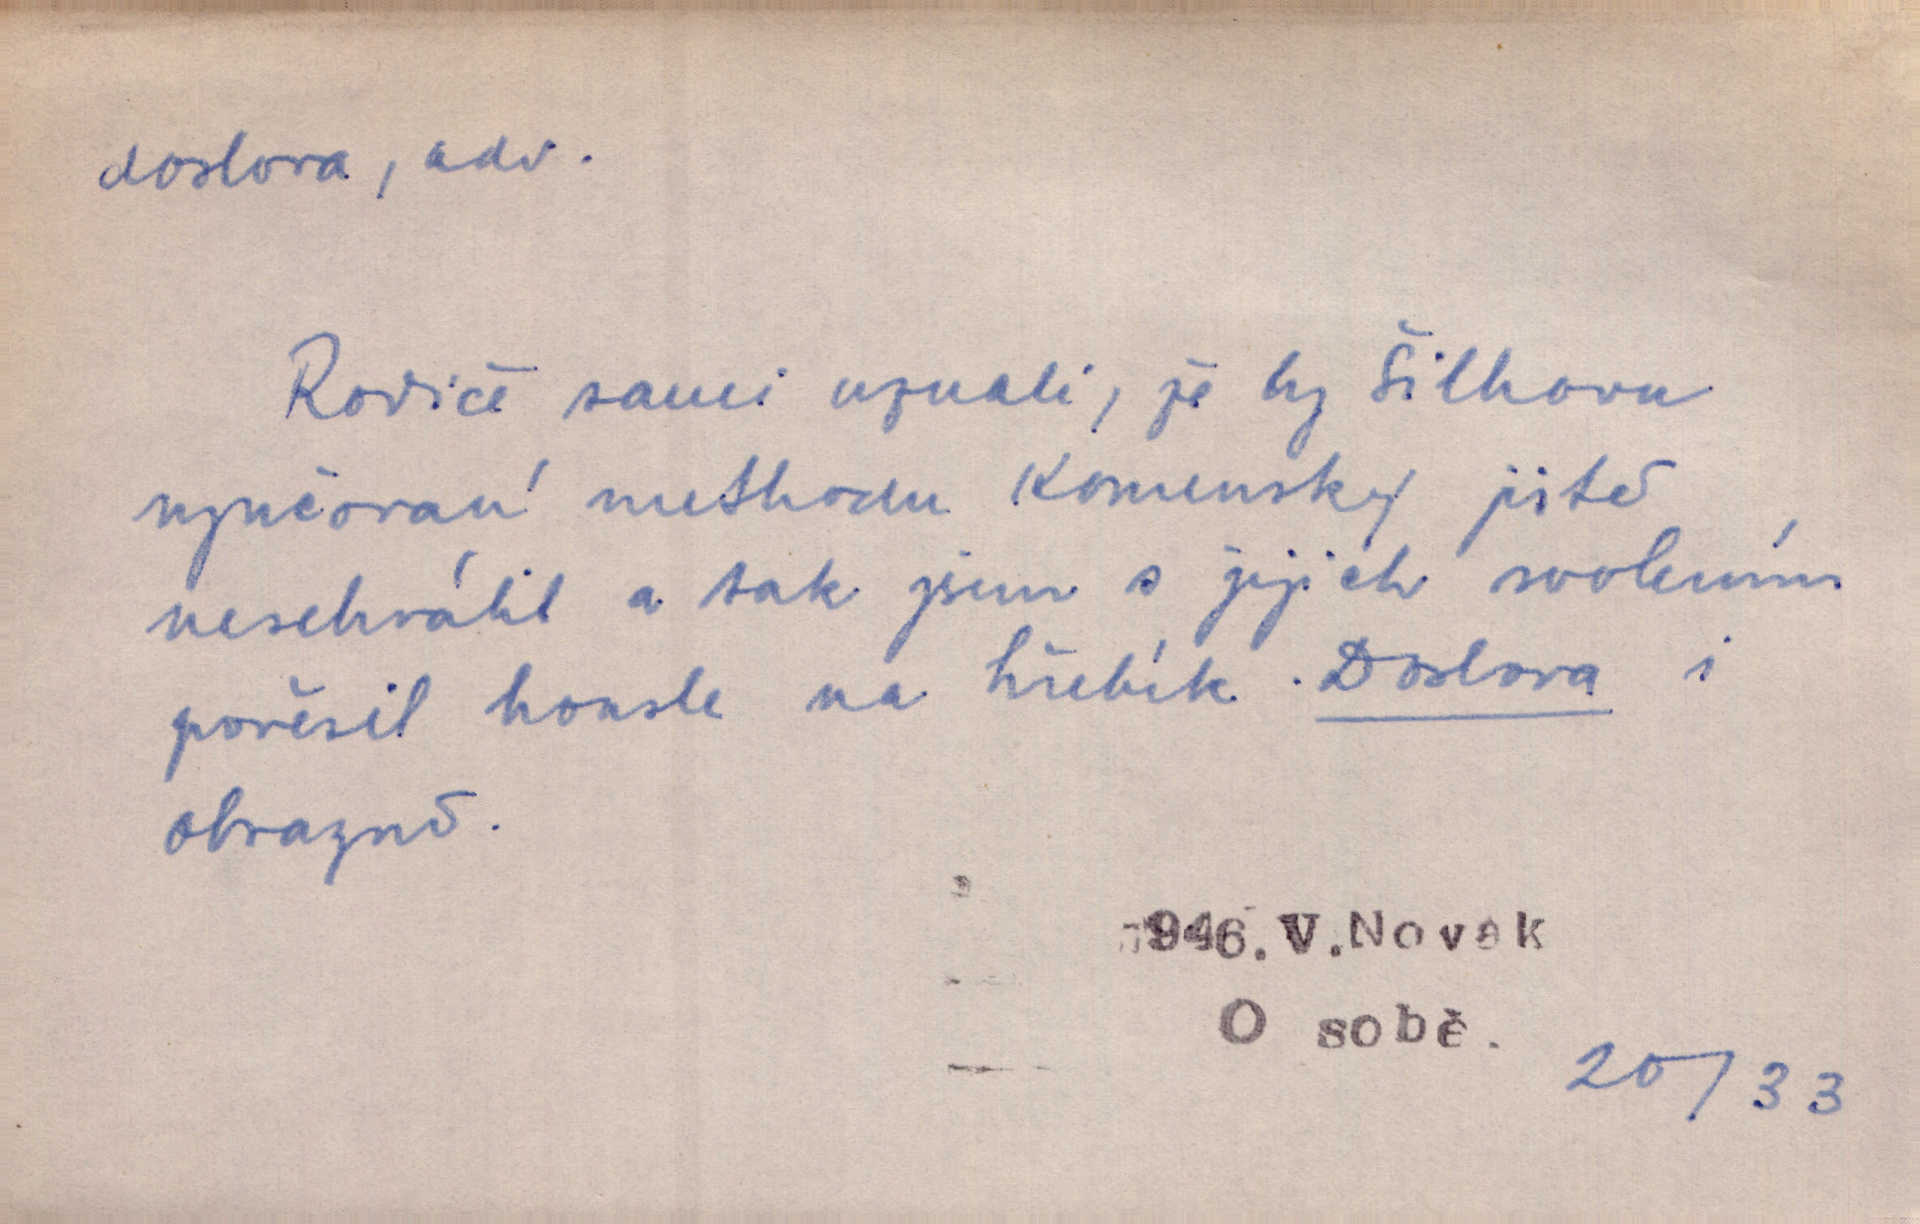 doslova, adv.
Rodiče sami uznali, že by Šilhovu
vyučovaní methodu Komenský jistě
neschválil a tak jsem s jejich svolením
pověsil housle na hřebík. Doslova i
obrazně.
1946. V. Novák
O sobě.
20/33